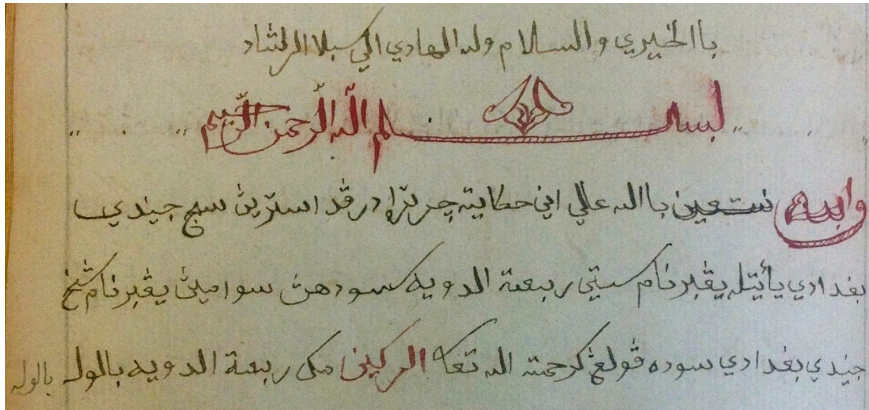 باالخيري والسلام والله الهادي الي سبلا الرشاد
بسم الله الرحمن الرحيم
وابه نستعين باالله علي اين حكاية چرترا درڤد استرين سيخ جيندي
بغدادي يأيت يڠبرنام ستي ربيعة الدويه سوده سوامين يڠبرنام شيخ
جيندي بغدادي سوده ڤولڠ كرحمة الله تعا الركين مك ربيعة الدويه بالوله
بالوله